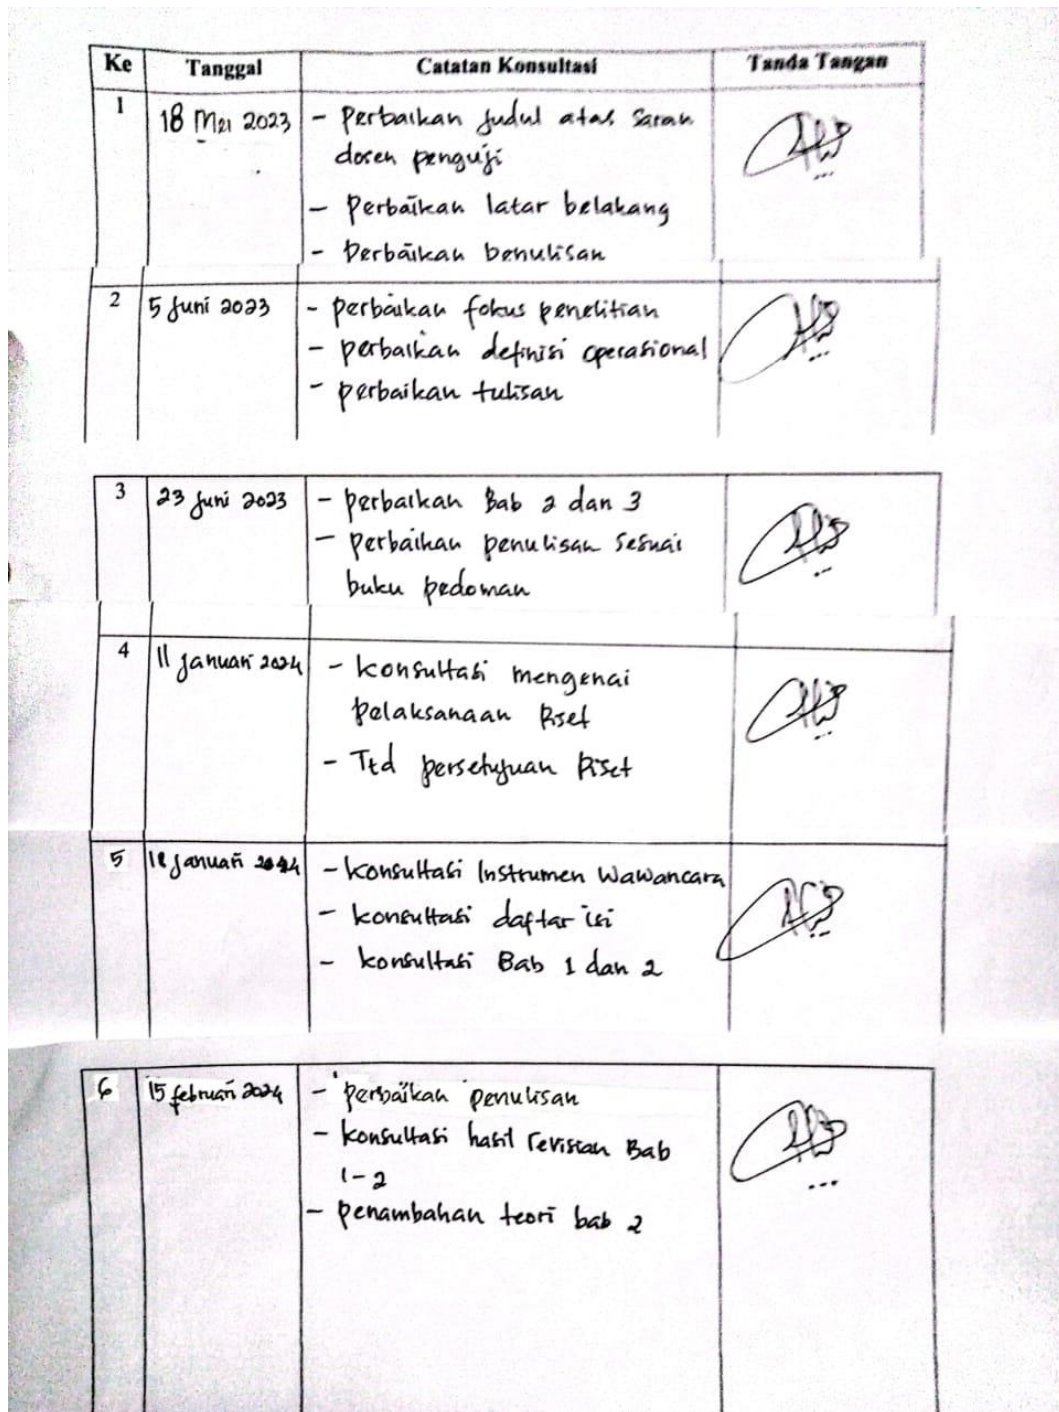 Ke Tanggal Catatan Konsultasi Tanda Tangan
1 18 Mei 2023 - Perbaikan Judul atas saran
dosen penguji
- Perbaikan latar belakang
- Perbaikan penulisan
2 5 Juni 2023 - perbaikan fokus penelitian
- perbaikan definisi operasional
- perbaikan tulisan
3 23 Juni 2023 - perbaikan Bab 2 dan 3
- perbaikan penulisan sesuai
buku pedoman
4 11 Januari 2024 - konsultasi mengenai
pelaksanaan Riset
- Ttd persetujuan Riset
5 Januari 2024 - konsultasi Instrumen Wawancara
- konsultasi daftar isi
- konsultasi Bab 1 dan 2
6 15 februari 2024 - perbaikan penulisan
- konsultasi hasil revisian Bab
1-2
- penambahan teori bab 2